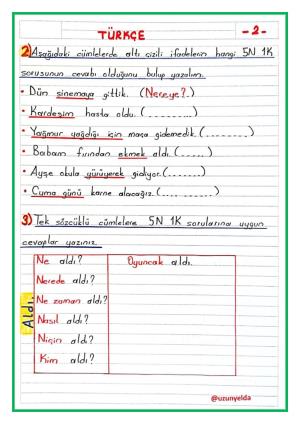 TÜRKÇE
- 2 -
2) Aşağıdaki cümlelerde altı çizili ifadelerin hangi 5N 1K
sorusunun cevabı olduğunu bulup yazalım.
• Dün sinemaya gittik. (Nereye?.)
• Kardeşim hasta oldu. (.........)
• Yağmur yağdığı için maça gidemedik. (.........)
• Babam fırından ekmek aldı. (......)
• Ayşe okula yürüyerek gidiyor. (.......)
• Cuma günü karne alacağız. (.............)
3) Tek sözcüklü cümlelere 5N 1K sorularına uygun
cevaplar yazınız.
Aldı.
Ne aldı? Oyuncak aldı.
Nerede aldı?
Ne zaman aldı?
Nasıl aldı?
Niçin aldı?
Kim aldı?
@uzunyelda